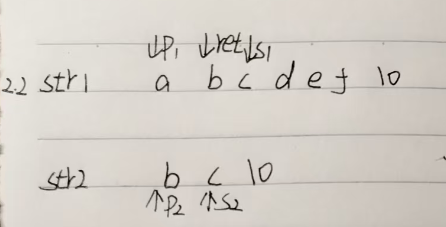 ↓p1 ↓ret ↓s1
2.2 str1 a b c d e f \0
str2 b c \0
↑p2 ↑s2